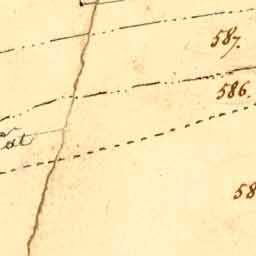 587.
586.
at
58